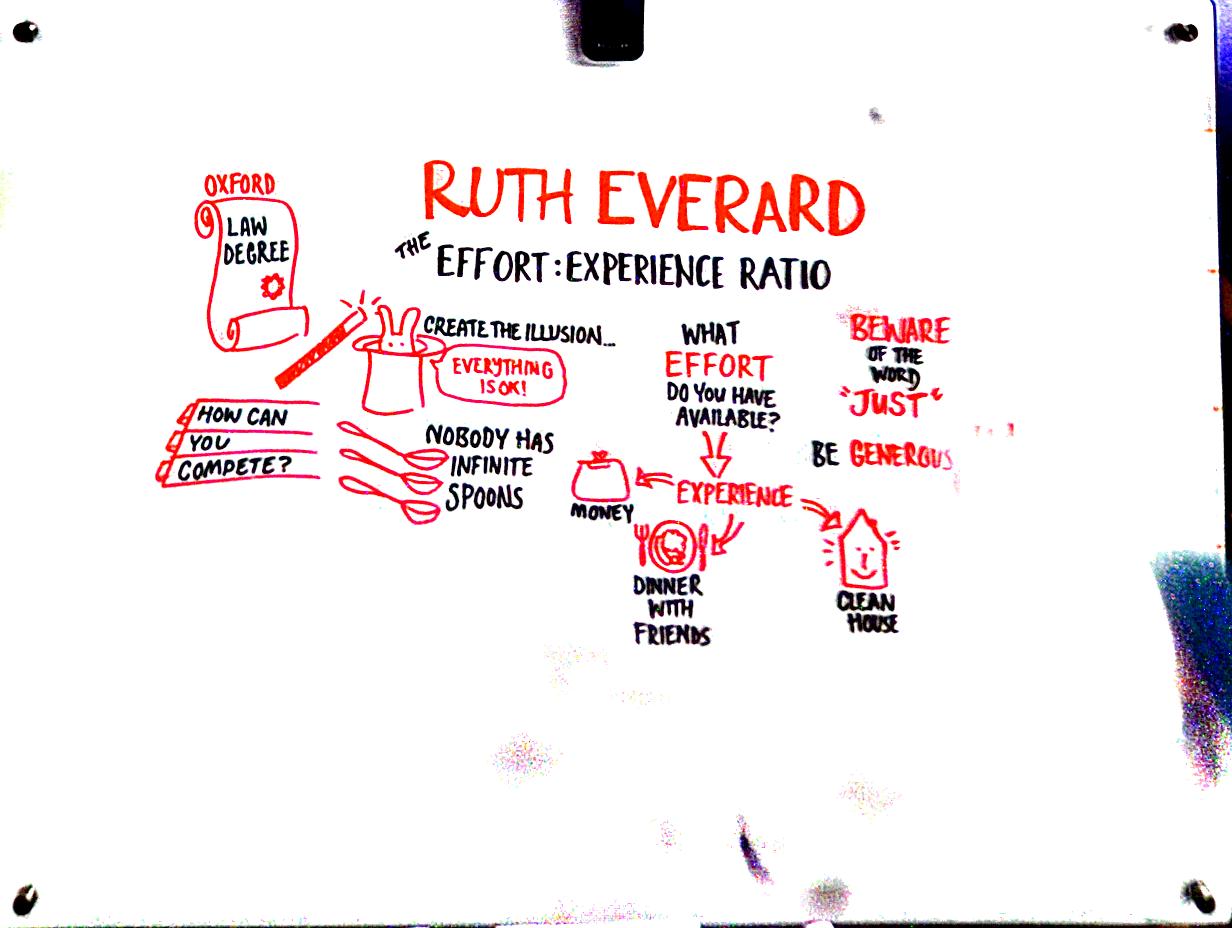 RUTH EVERARD
THE EFFORT:EXPERIENCE RATIO
OXFORD
LAW
DEGREE
CREATE THE ILLUSION...
EVERYTHING
IS OK!
HOW CAN
YOU
COMPETE?
NOBODY HAS
INFINITE
SPOONS
WHAT
EFFORT
DO YOU HAVE
AVAILABLE?
EXPERIENCE
MONEY
DINNER
WITH
FRIENDS
CLEAN
HOUSE
BEWARE
OF THE
WORD
"JUST"
BE GENEROUS